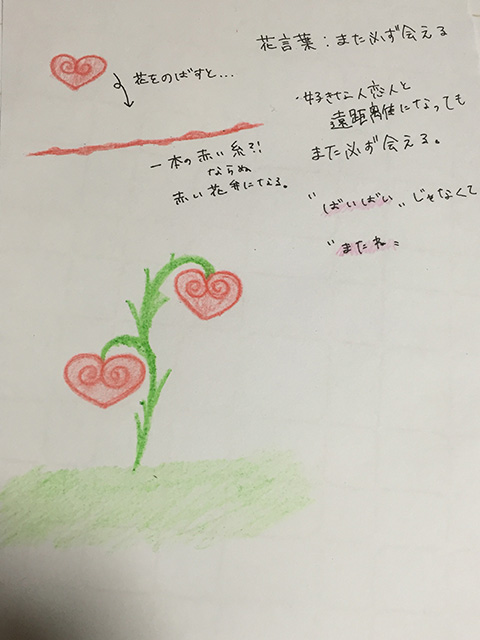 花言葉：また必ず会える
花をのばすと...
・好きな人恋人と
遠距離になっても
また必ず会える。
一本の赤い糸?!
ならぬ
赤い花弁になる。
"ばいばい"じゃなくて
"またね"